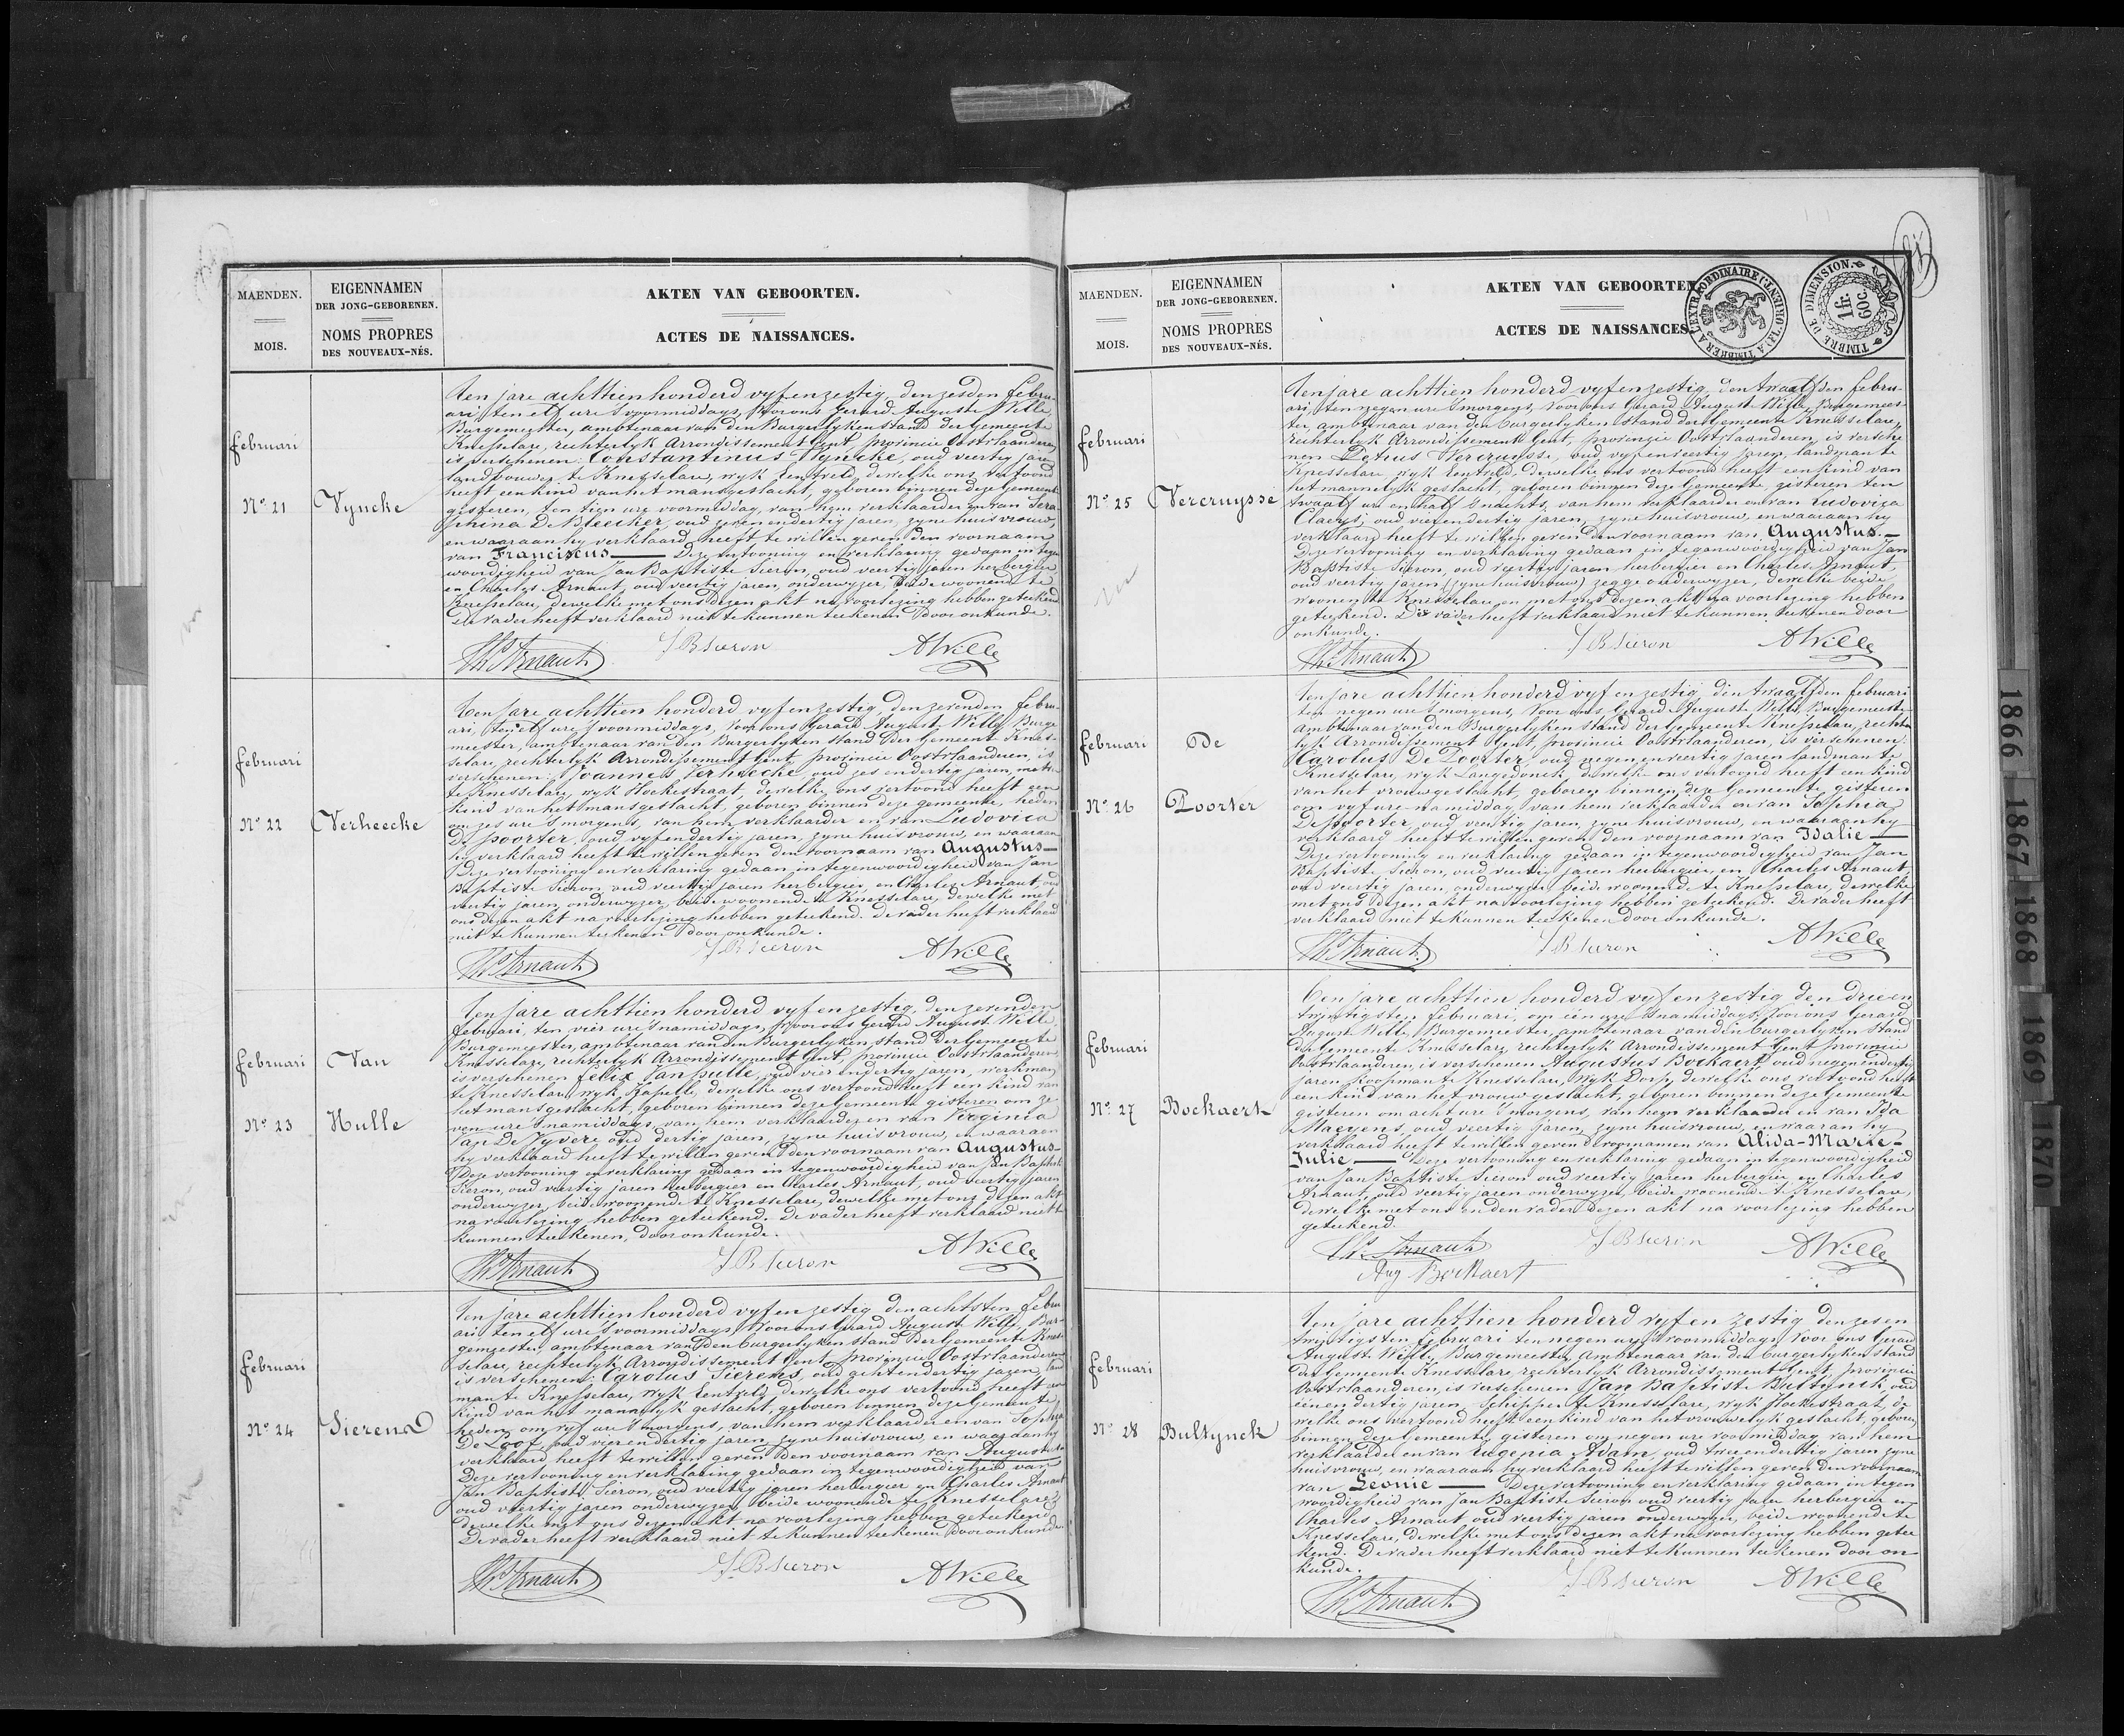 MAENDEN.
MOIS.
EIGENNAMEN
DER JONG-GEBORENEN.
NOMS PROPRES
DES NOUVEAUX-NÉS.
AKTEN VAN GEBOORTEN.
ACTES DE NAISSANCES.
februari
N° 21
Vyncke
Ten jare achttien honderd vyf en zestig, den zesden febru-
ari, ten elf ure 's voormiddags, Voor ons Gerard Auguste Wille,
Burgemeester, ambtenaar van den Burgerlyken stand der Gemeente
Knesselare, rechterlyk Arrondissement Gent, provincie Oostvlaanderen,
is verschenen: Constantinus Vyncke, oud veertig jaren
landbouwer te Knesselare, wyk Eentveld, dewelke ons vertoond
heeft een kind van het mansgeslacht, geboren binnen deze Gemeente
gisteren, ten tien ure voormiddag, van hem verklaarder en van Sera-
phina De Bleecker, oud zeven en dertig jaren, zyne huisvrouw,
en waaraan hy verklaard heeft te willen geven den voornaam
van Franciscus — Deze vertooning en verklaring gedaan in tegen
woordigheid van Jan Baptiste Sieron, oud veertig jaren herbergier
en Charles Arnaut, oud veertig jaren, onderwyzer, beide woonende te
Knesselare, dewelke met ons dezen akt na voorlezing hebben geteekend
De vader heeft verklaard niet te kunnen teekenen door onkunde.
Ch. Arnaut
J B Sieron
A Wille
februari
N° 22
Verheecke
Ten jare achttien honderd vyf en zestig, den zevenden febru-
ari, ten elf ure 's voormiddags, voor ons Gerard August Wille, Burge
meester, ambtenaar van den Burgerlyken stand der Gemeente Knes-
selare, rechterlyk Arrondissement Gent, provincie Oostvlaanderen, is
verschenen: Joannes Verheecke, oud zes en dertig jaren,
te Knesselare, wyk Hoekestraat, dewelke ons vertoond heeft een
kind van het mansgeslacht, geboren binnen deze gemeente, heden
om zes ure 's morgens, van hem verklaarder en van Ludovica
De Poorter, oud vyf en dertig jaren, zyne huisvrouw, en waaraan
hy verklaard heeft te willen geven den voornaam van Augustus —
Deze vertooning en verklaring gedaan in tegenwoordigheid van Jan
Baptiste Sieron, oud veertig jaren herbergier, en Charles Arnaut, oud
veertig jaren, onderwyzer, beide woonende te Knesselare, dewelke met
ons dezen akt na voorlezing hebben geteekend. De vader heeft verklaard
niet te kunnen teekenen door onkunde.
Ch. Arnaut
J B Sieron
A Wille
februari
N° 23
Van
Hulle
Ten jare achttien honderd vyf en zestig, den zevenden
februari, ten vier ure 's namiddags, Voor ons Gerard August Wille,
Burgemeester, ambtenaar van den Burgerlyken stand der Gemeente
Knesselare, rechterlyk Arrondissement Gent, provincie Oostvlaanderen,
is verschenen Felix Van hulle, oud vier en dertig jaren, werkman
te Knesselare, wyk Kapelle, dewelke ons vertoond heeft een kind van
het mansgeslacht, geboren binnen deze Gemeente gisteren om ze-
ven ure 's namiddags, van hem verklaarder en van Virginia
Van De Vyvere oud dertig jaren, zyne huisvrouw, en waaraan
hy verklaard heeft te willen geven den voornaam van Augustus —
Deze vertooning en verklaring gedaan in tegenwoordigheid van Jan Baptiste
Sieron, oud veertig jaren herbergier en Charles Arnaut, oud veertig jaren
onderwyzer, beide woonende te Knesselare, dewelke met ons dezen akt
na voorlezing hebben geteekend. De vader heeft verklaard niet te
kunnen teekenen, door onkunde.
Ch. Arnaut
J B Sieron
A Wille
februari
N° 24
Sierens
Ten jare achttien honderd vyf en zestig den achtsten febru
ari ten elf ure 's voormiddags, Voor ons Gerard August Wille, Bur-
gemeester, ambtenaar van den Burgerlyken stand der Gemeente Knes-
selare, rechterlyk Arrondissement Gent, provincie Oostvlaanderen
is verschenen: Carolus Sierens, oud acht en dertig jaren, land
man te Knesselare, wyk Eentveld, dewelke ons vertoond heeft een
kind van het mannelyk geslacht, geboren binnen deze Gemeente,
heden, om vyf ure 's morgens, van hem verklaarder en van Sophia
De Loof, oud vier en dertig jaren, zyne huisvrouw, en waaraan hy
verklaard heeft te willen geven den voornaam van Augustus
Deze vertooning en verklaring gedaan in tegenwoordigheid van
Jan Baptiste Sieron, oud veertig jaren herbergier en Charles Arnaut
oud veertig jaren onderwyzer, beide woonende te Knesselare
dewelke met ons dezen akt na voorlezing hebben geteekend
De vader heeft verklaard niet te kunnen teekenen door onkunde
Ch. Arnaut
J B Sieron
A Wille
MAENDEN.
MOIS.
EIGENNAMEN
DER JONG-GEBORENEN.
NOMS PROPRES
DES NOUVEAUX-NÉS.
AKTEN VAN GEBOORTEN
ACTES DE NAISSANCES.
TIMBRE A L'EXTRAORDINAIRE
TIMBRE DE DIMENSION.
1 fr.
60 c.
februari
N° 25
Vercruysse
Ten jare achttien honderd vyf en zestig, den twaalfden febru-
ari, ten negen ure 's morgens, voor ons Gerard August Wille, Burgemees-
ter, ambtenaar van den burgerlyken stand der Gemeente Knesselare,
rechterlyk Arrondissement Gent, provincie Oostvlaanderen, is versche
nen Petrus Vercruysse, oud vyf en veertig jaren, landman te
Knesselare, wyk Eentveld, dewelke ons vertoond heeft een kind van
het mannelyk geslacht, geboren binnen deze Gemeente, gisteren ten
twaalf ure en half 's nachts, van hem verklaarder en van Ludovica
Claeys, oud vier en dertig jaren, zyne huisvrouw, en waaraan hy
verklaard heeft te willen geven den voornaam van Augustus. —
Deze vertooning en verklaring gedaan in tegenwoordigheid van Jan
Baptiste Sieron, oud veertig jaren herbergier en Charles Arnaut,
oud veertig jaren (zyne huisvrouw) zegge onderwyzer, dewelke beide
woonen te Knesselare, en met ons dezen akt na voorlezing hebben
geteekend. De vader heeft verklaard niet te kunnen teekenen door
onkunde.
Ch. Arnaut
J B Sieron
A Wille
februari
N° 26
De
Poorter
Ten jare achttien honderd vyf en zestig, den twaalfden februari
ten negen ure 's morgens, Voor ons Gerard Auguste Wille, Burgemeester
Ambtenaar van den Burgerlyken stand der Gemeente Knesselare, rechter
lyk Arrondissement Gent, provincie Oostvlaanderen, is verschenen:
Carolus De Poorter, oud negen en veertig jaren landman te
Knesselare, wyk Langedonck, dewelke ons vertoond heeft een kind
van het vrouwgeslacht, geboren binnen deze Gemeente gisteren
om vyf ure namiddag van hem verklaarder en van Sophia
De Poorter, oud veertig jaren, zyne huisvrouw, en waaraan hy
verklaard heeft te willen geven den voornaam van Idalie —
Deze vertooning en verklaring gedaan in tegenwoordigheid van Jan
Baptiste Sieron, oud veertig jaren herbergier, en Charles Arnaut,
oud veertig jaren, onderwyzer beide woonende te Knesselare, dewelke
met ons dezen akt na voorlezing hebben geteekend. De vader heeft
verklaard niet te kunnen teekenen door onkunde.
Ch. Arnaut
J B Sieron
A Wille
februari
N° 27
Bockaert
Ten jare achttien honderd vyf en zestig den drie en
twintigsten februari, om één ure 's namiddags, voor ons Gerard
August Wille, Burgemeester, ambtenaar van den burgerlyken stand
der Gemeente Knesselare, rechterlyk Arrondissement Gent provincie
Oostvlaanderen, is verschenen Augustus Bockaert, oud negen en dertig
jaren, koopman te Knesselare, Wyk Dorp, dewelke ons vertoond heeft
een kind van het vrouwgeslacht, geboren binnen deze Gemeente
gisteren om acht ure 's morgens, van hem verklaarder en van Ida
Maeyens, oud veertig jaren, zyne huisvrouw, en waaraan hy
verklaard heeft te willen geven de voornamen van Alida-Marie-
Julie — Deze vertooning en verklaring gedaan in tegenwoordigheid
van Jan Baptiste Sieron oud veertig jaren herbergier, en Charles
Arnaut, oud veertig jaren onderwyzer, beide woonende te Knesselare,
dewelke met ons en den vader dezen akt na voorlezing hebben
geteekend.
Ch. Arnaut
J B Sieron
A Wille
Aug Bockaert
februari
N° 28
Bultynck
Ten jare achttien honderd vyf en zestig den zes en
twintigsten februari ten negen ure 's voormiddags Voor ons Gerard
August Wille, Burgemeester, Ambtenaar van den burgerlyken stand
der Gemeente Knesselare, rechterlyk Arrondissement Gent, provincie
Oostvlaanderen, is verschenen Jan Baptiste Bultynck, oud
één en dertig jaren, schipper te Knesselare, wyk Hoekestraat, de
welke ons vertoond heeft een kind van het vrouwelyk geslacht, geboren
binnen deze Gemeente, gisteren om negen ure voormiddag van hem
verklaarder en van Eugenia Adam, oud twee en dertig jaren zyne
huisvrouw, en waaraan hy verklaard heeft te willen geven den voornaam
van Leonie — Deze vertooning en verklaring gedaan in tegen
woordigheid van Jan Baptiste Sieron oud veertig jaren herbergier en
Charles Arnaut, oud veertig jaren onderwyzer, beide woonende te
Knesselare, dewelke met ons dezen akt na voorlezing hebben getee
kend. De vader heeft verklaard niet te kunnen teekenen door on-
kunde.
Ch. Arnaut
J B Sieron
A Wille
1866
1867
1868
1869
1870